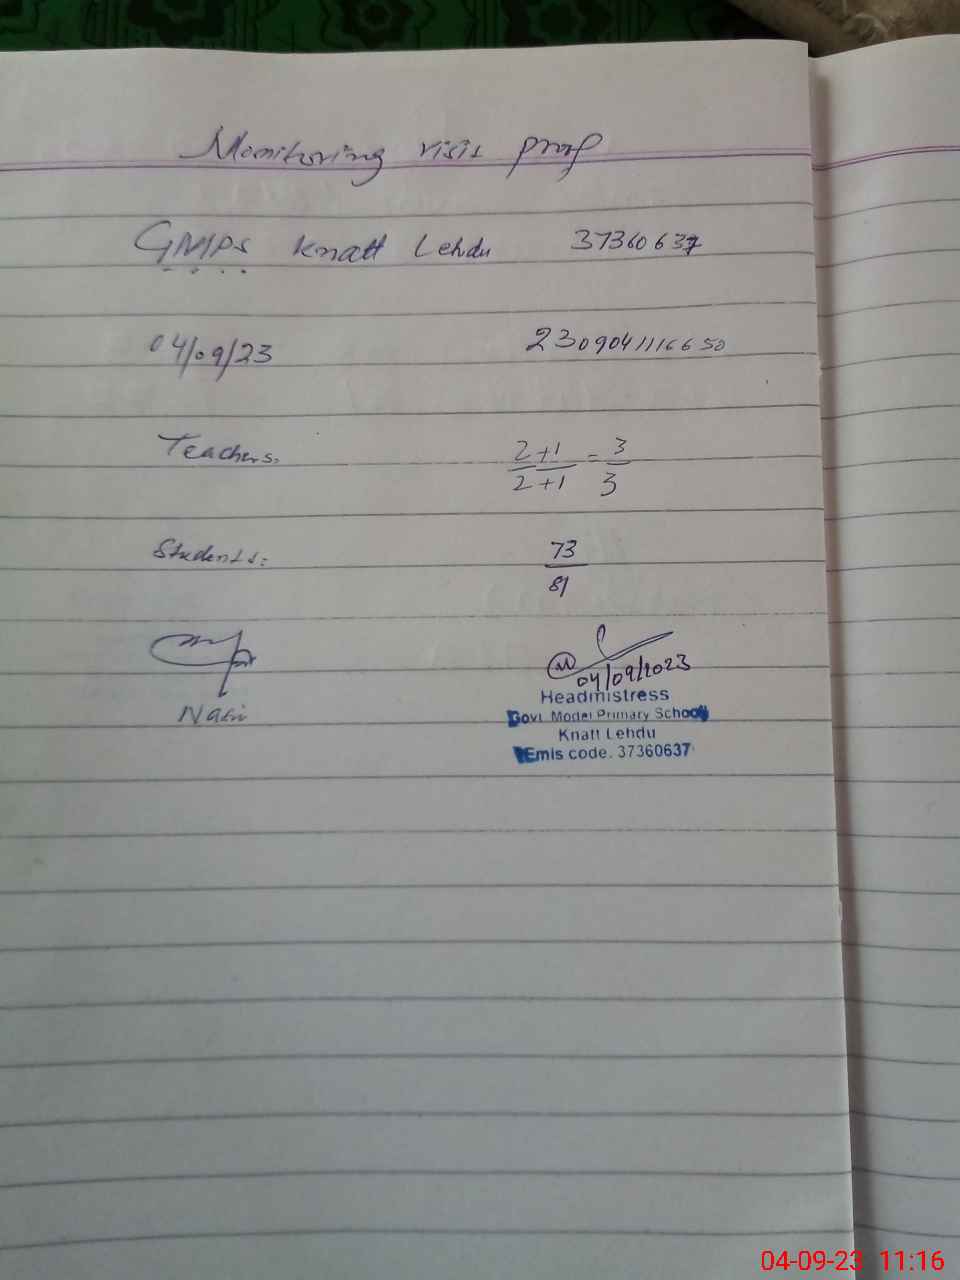 Monitoring visit proof
GMPS Knatt Lehdu 37360637
04/09/23 2309041116650
Teachers. 2+1/2+1 = 3/3
Students: 73/81
04/09/2023
Headmistress
Govt. Model Primary School
Knatt Lehdu
Emis code. 37360637
04-09-23 11:16